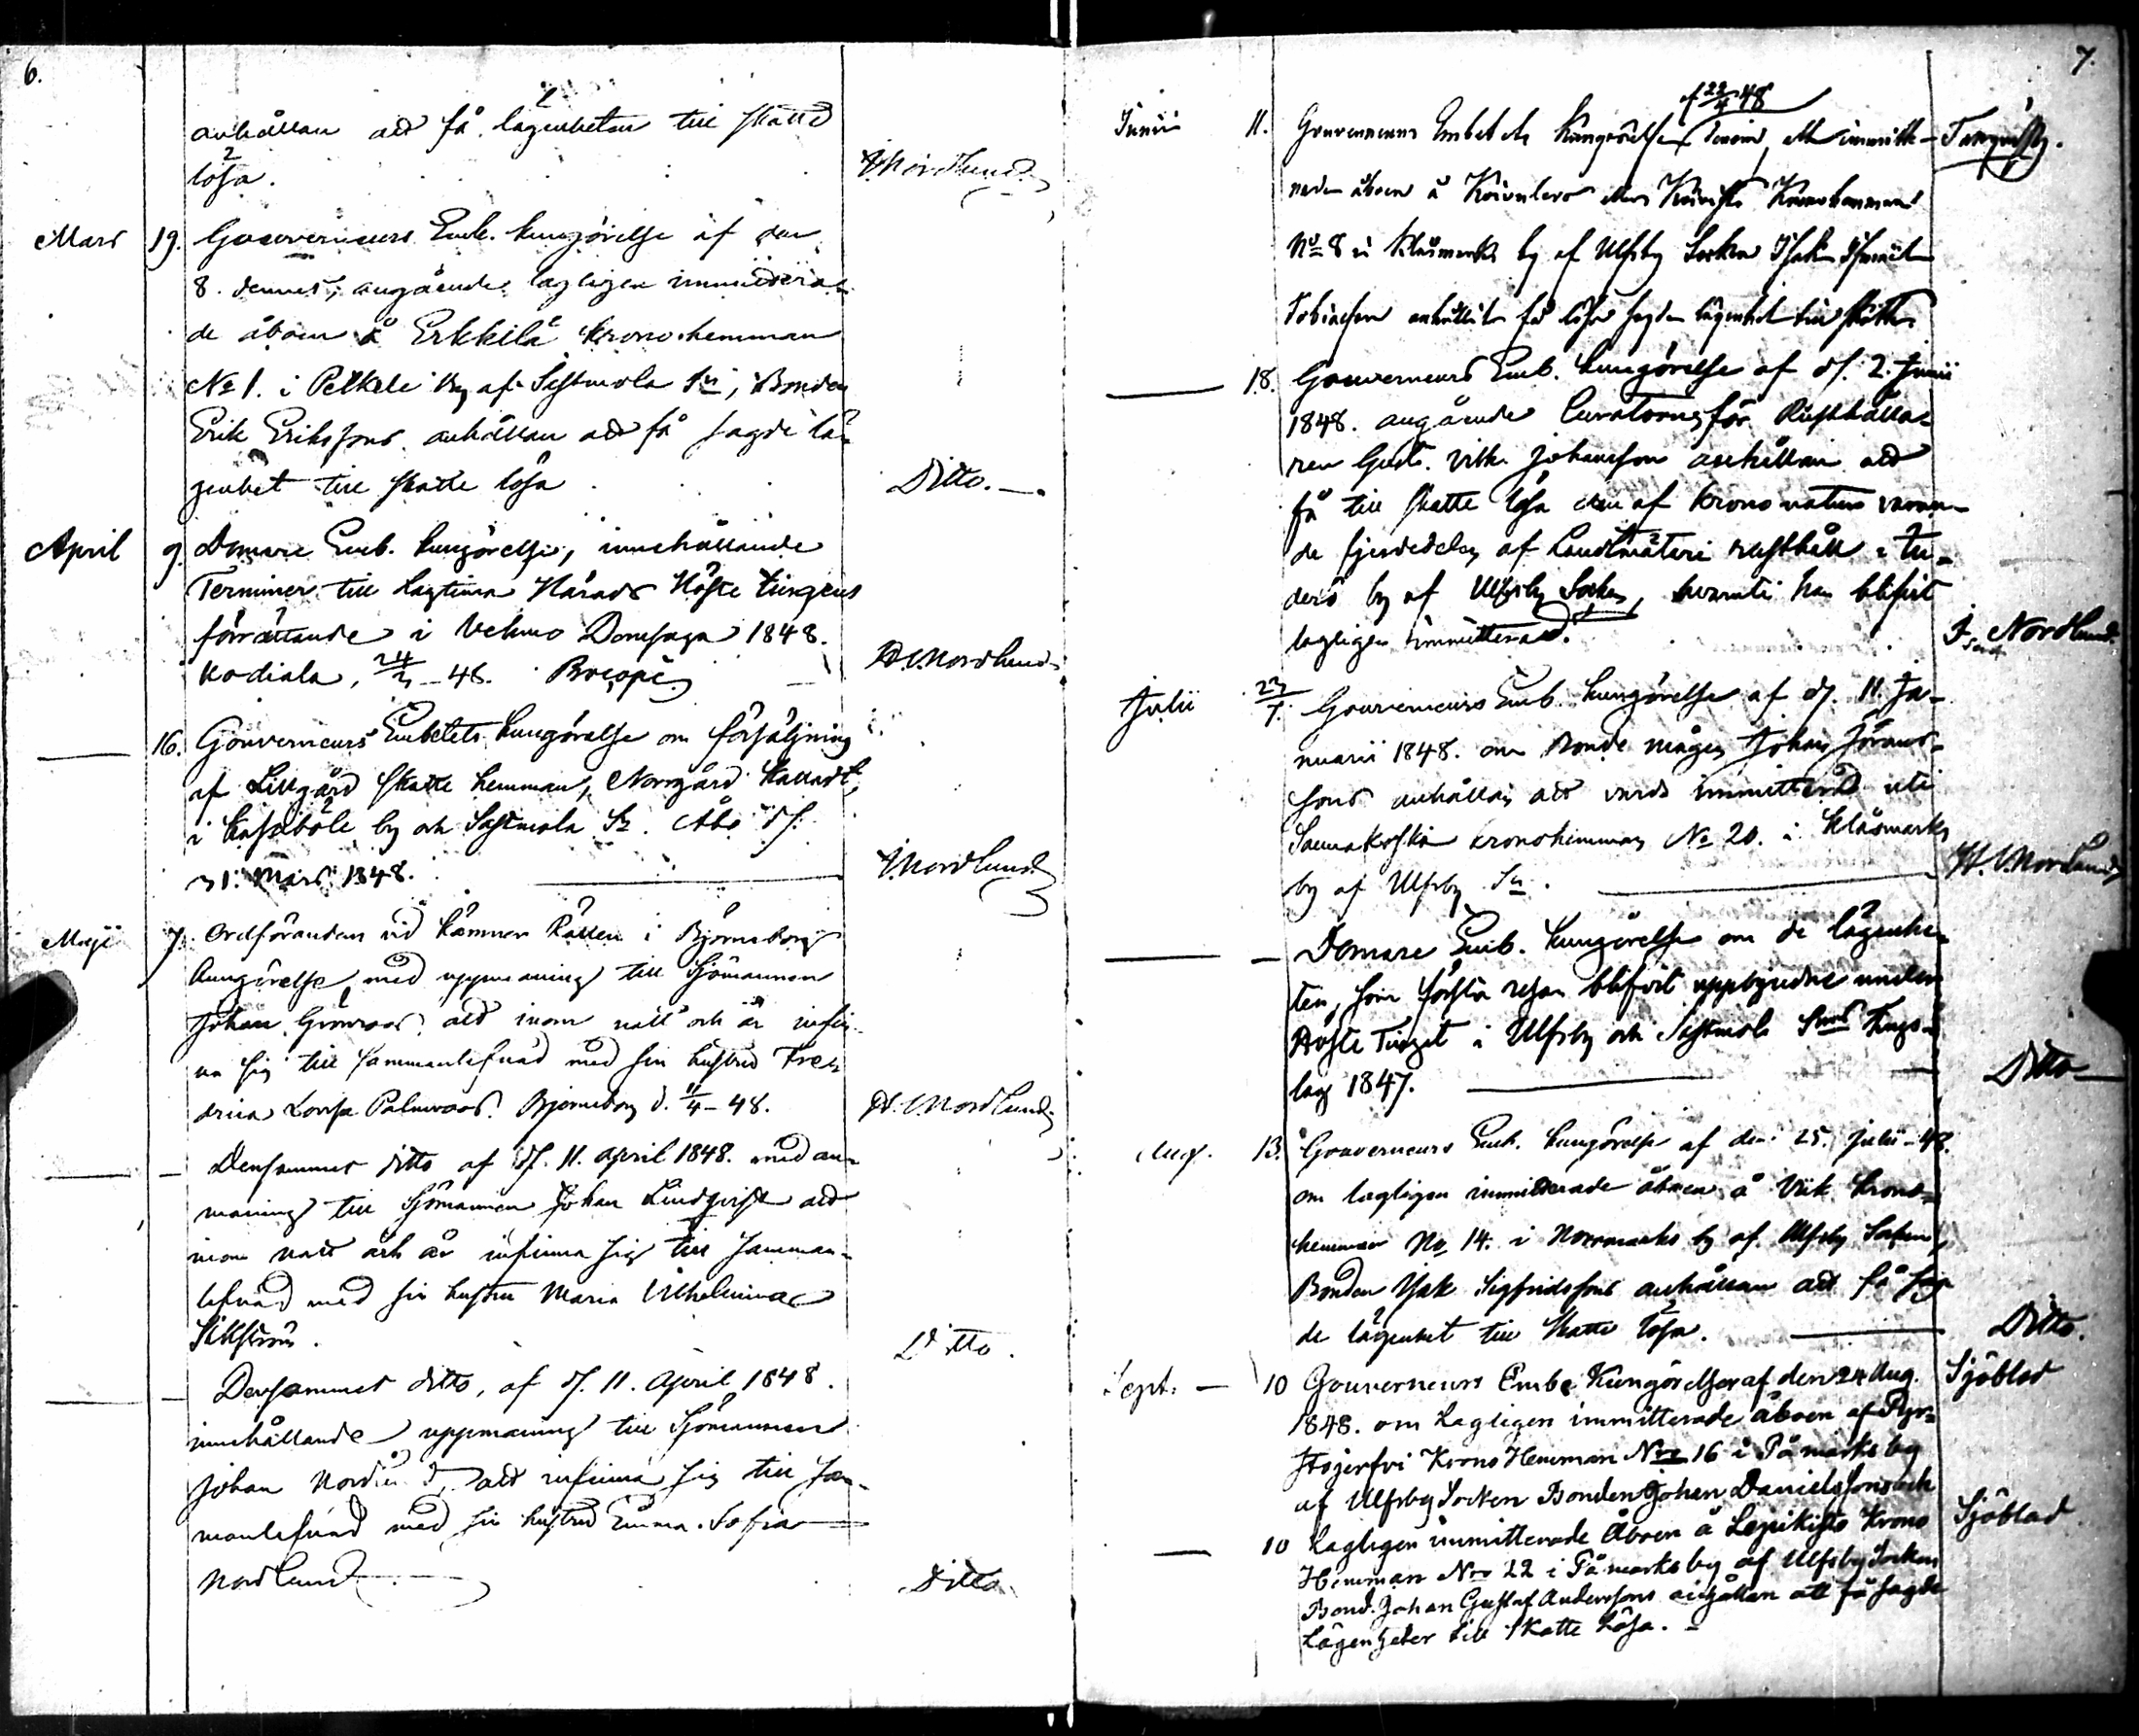 6.
anhållan att få lägenheten till skatte
lösa.
Nordlund
Mars 19. Gouverneurs Emb. kungörelse af den
8. dennes, angående lagligen immittera-
de åboen å Erkkilä krono hemman
No 1. i Peltele by af Sastmola Sn, Bonden
Erik Erikssons anhållan att få sagde lä-
genhet till skatte lösa
Ditto.
April 9. Domare Emb. kungörelse, innehållande
Terminer till Lagtima Härads Höste Tingens
förrättande i Vehmo Domsaga 1848.
Nordlund
16. Gouverneurs Embetets kungörelse om försäljning
af Lillgård skatte hemman, Norrgård kalladt,
i Kasaböle by och Sastmola Sn. Åbo d.
31. Mars 1848.
Nordlund
Maji 7. Ordföranden vid Kämners Rätten i Björneborg
kungörelse med uppmaning till Sjömannen
Johan Grönroos, att inom natt och år infin-
na sig till sammanlefnad med sin hustru Fre-
drica Lovisa Palmroos. Björneborg d. 11/4 - 48.
Nordlund
Densammes ditto af d. 11. April 1848. med an-
maning till Sjömannen Johan Lindqvist att
inom natt och år infinna sig till samman-
lefnad med sin hustru Maria Vilhelmina
Ditto.
Densammes ditto, af d. 11. April 1848.
innehållande uppmaning till Sjömannen
Johan att infinna sig till sam-
manlefnad med sin hustru Emma Sofia
Nordlund
Ditto
7.
af 22/4 48
Junii 11. Gouverneurs Embetets Kungörelse derom, att immitte-
rade åboen å Krono hemman
No 8 i Klåsmarks by af Ulfsby Socken Isak
Tobiasson anhållit få lösa sagde lägenhet till skatte
18. Gouverneurs Emb. kungörelse af d. 2. Junii
1848. angående Curatorns för Rusthålla-
ren Gust. Vilh. Johansson anhållan att
få till skatte lösa den af krono natur varan-
de fjerdedelen af Landtmäteri rusthåll i
by af Ulfsby Socken, hvaruti han blifvit
lagligen immitterad.
Nordlund.
Julii 23/7. Gouverneurs Emb. kungörelse af d. 11. Ja-
nuarii 1848. om Bonde mågen Johan Jörans-
sons anhållan att varda immitterad uti
kronohemman No 20. i Klåsmarks
by af Ulfsby Sn.
Nordlund
Domare Emb. kungörelse om de lägenhe-
ter, som första resan blifvit uppbjudne under
Höste Tinget i Ulfsby och Sastmola Snrs Tings-
lag 1847.
Ditto
Aug. 13. Gouverneurs Emb. kungörelse af den 25. Julii - 48.
om lagligen immitterade åboen å Viik krono-
hemman No 14. i Norrmarks by af Ulfsby Socken,
Bonden Isak Sigfridssons anhållan att få sag-
de lägenhet till skatte lösa.
Ditto.
Sept. 10 Gouverneurs Embe Kungörelser af den 24 Aug.
1848. om Lagligen immitterade åboen af
Krono Hemman Nro 16 i Påmarks by
af Ulfsby Socken Bonden Johan Danielssons och
Sjöblad
10 Lagligen immitterade Åboen å Krono
Hemman Nro 22 i Påmarks by af Ulfsby Socken
Bond. Johan Gustaf Anderssons anhållan att få sagde
Lägenheter till Skatte Lösa.
Sjöblad